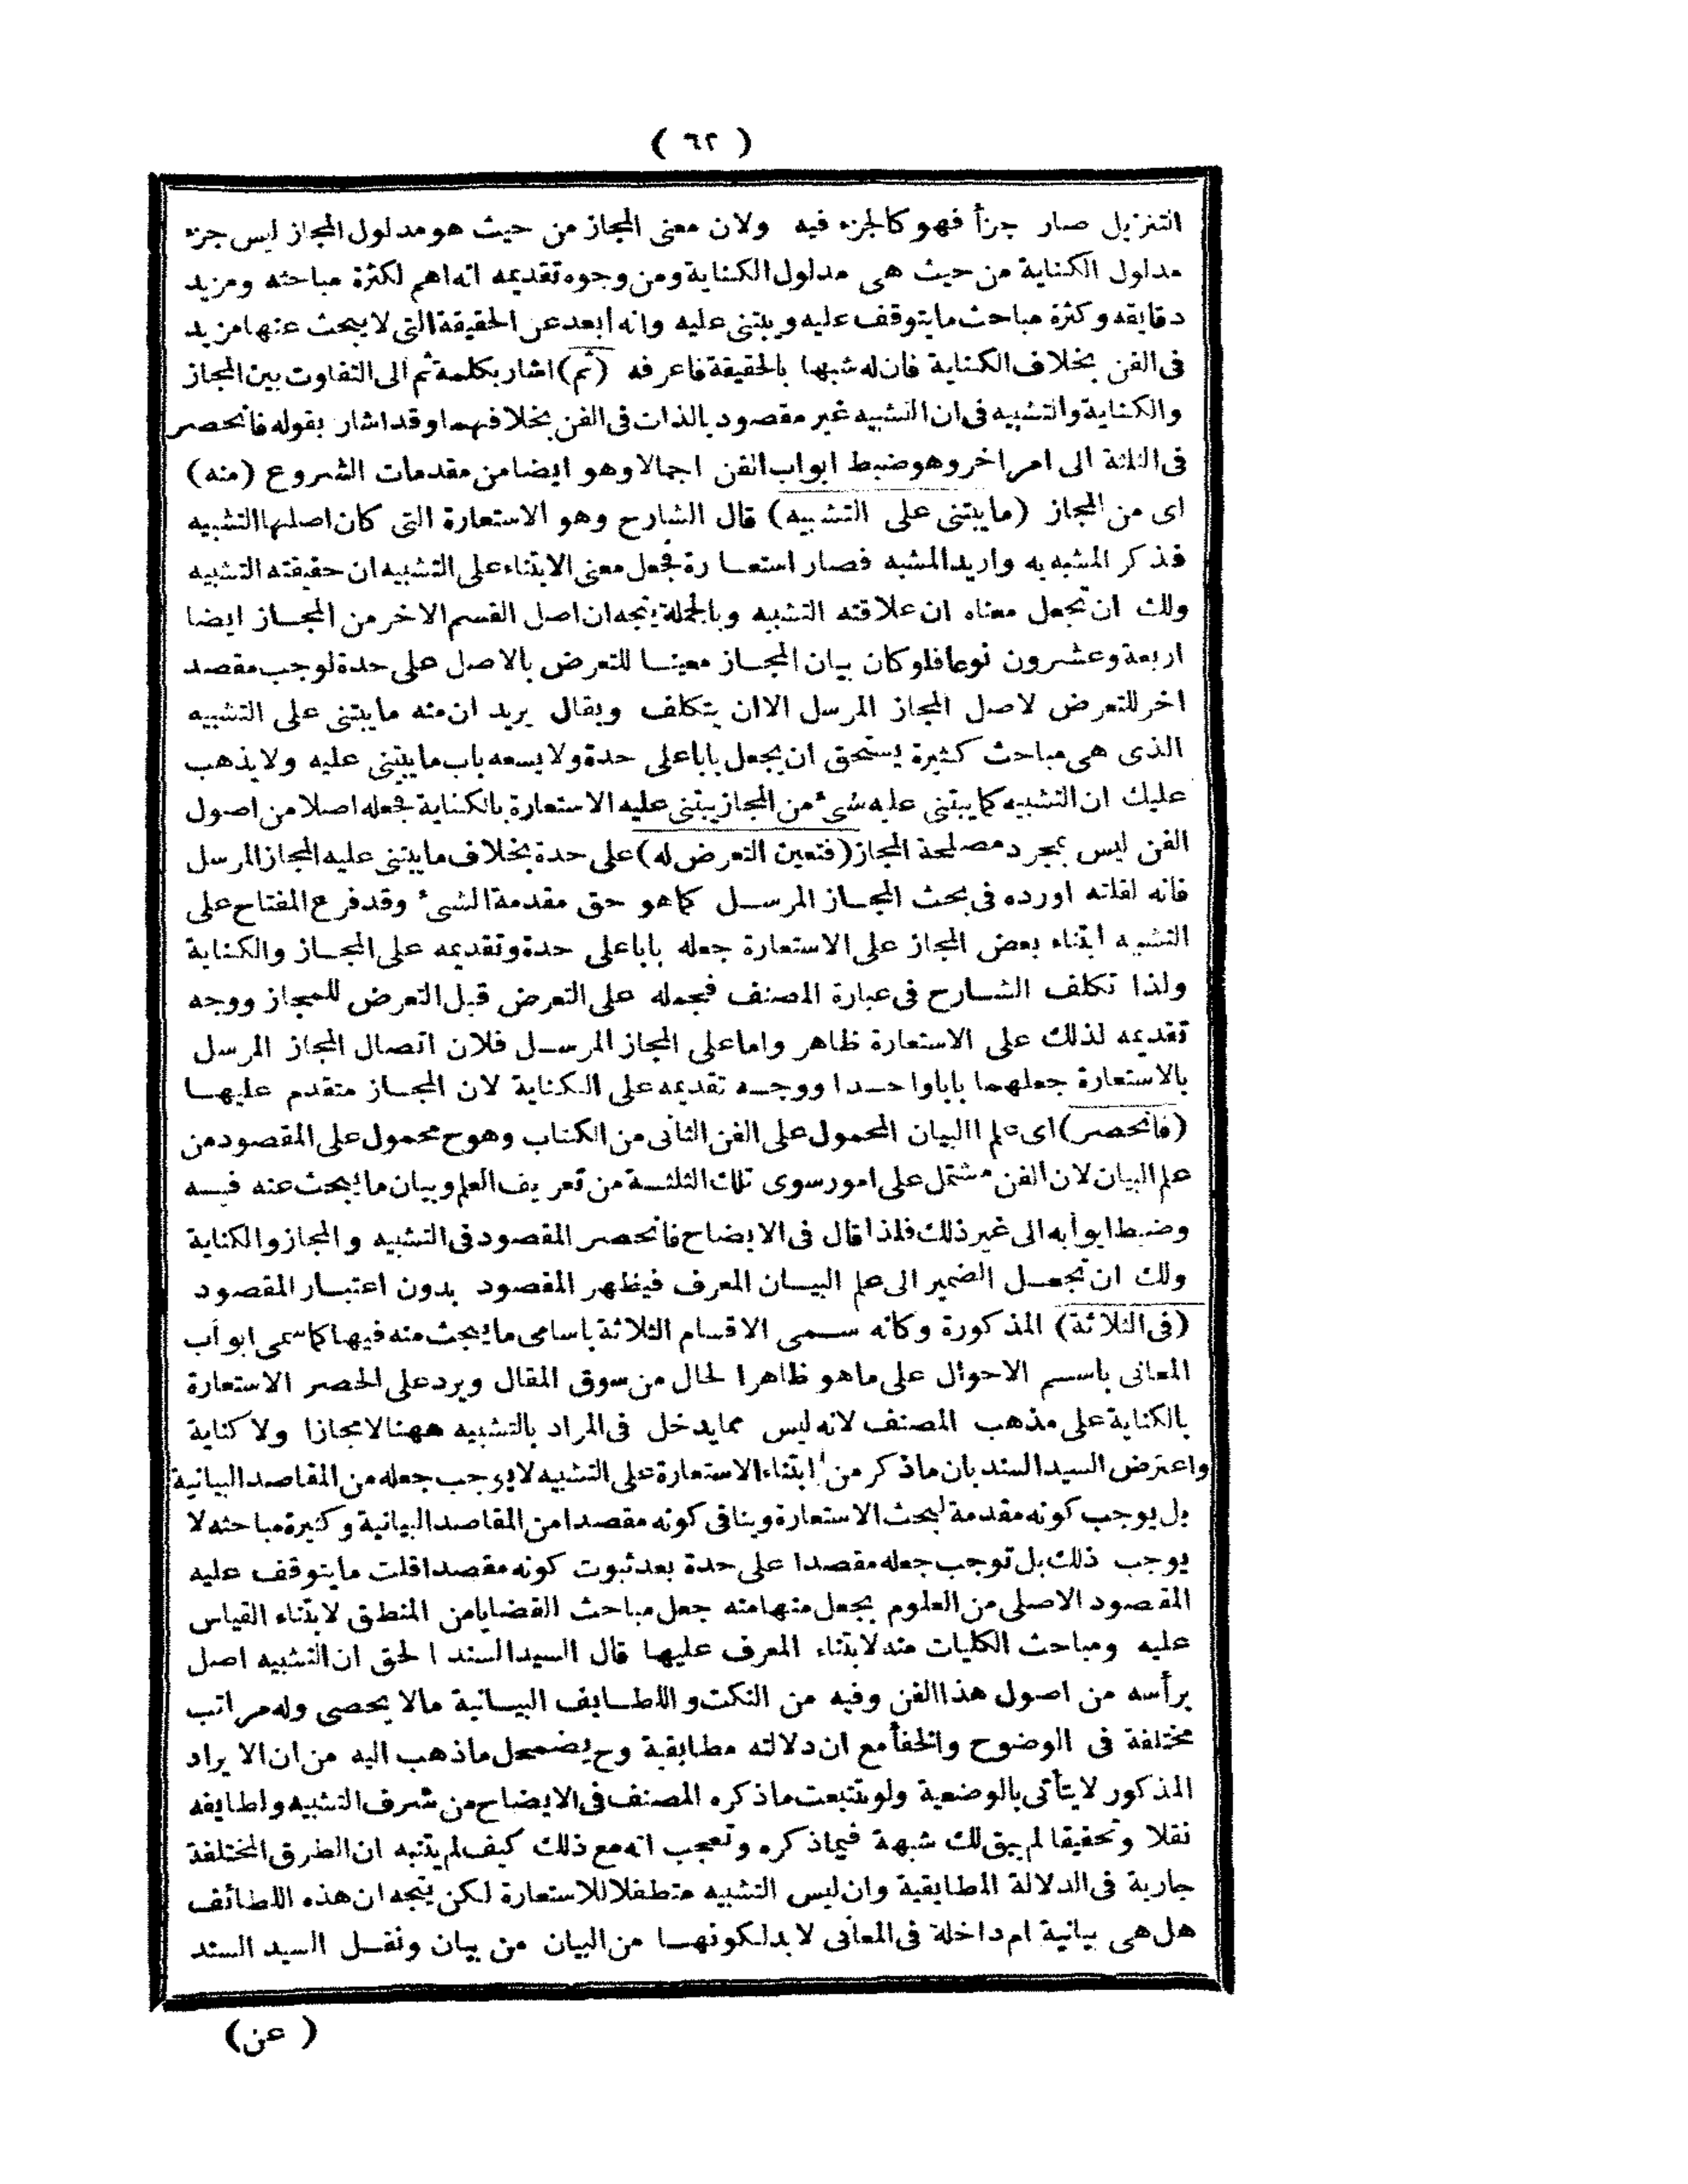 ( ٦٢ )
التنزيل صار جزأ فهو كالجزء فيه ولان معنى المجاز من حيث هو مدلول المجاز ليس جزء
مدلول الكناية من حيث هى مدلول الكناية ومن وجوه تقديمه انه اهم لكثرة مباحثه ومزيد
دقايقه وكثرة مباحث ما يتوقف عليه ويبتنى عليه وانه ابعد عن الحقيقة التى لا يبحث عنها مزيد
فى الفن بخلاف الكناية فان له شبها بالحقيقة فاعرفه (ثم) اشار بكلمة ثم الى التفاوت بين المجاز
والكناية والتشبيه فى ان التشبيه غير مقصود بالذات فى الفن بخلافهما وقد اشار بقوله فانحصر
فى الثلثة الى امر اخر وهو ضبط ابواب الفن اجمالا وهو ايضا من مقدمات الشروع (منه)
اى من المجاز (ما يبتنى على التشبيه) قال الشارح وهو الاستعارة التى كان اصلها التشبيه
فذكر المشبه به واريد المشبه فصار استعارة فجعل معنى الابتناء على التشبيه ان حقيقته التشبيه
ولك ان تجعل معناه ان علاقته التشبيه وبالجملة يتجه ان اصل القسم الاخر من المجاز ايضا
اربعة وعشرون نوعا فلو كان بيان المجاز معينا للتعرض بالاصل على حدة لوجب مقصد
اخر للتعرض لاصل المجاز المرسل الا ان يتكلف ويقال يريد ان منه ما يبتنى على التشبيه
الذى هى مباحث كثيرة يستحق ان يجعل بابا على حدة ولا يسعه باب ما يبتنى عليه ولا يذهب
عليك ان التشبيه كما يبتنى عليه شئ من المجاز يبتنى عليه الاستعارة بالكناية فجعله اصلا من اصول
الفن ليس بمجرد مصلحة المجاز (فتعين التعرض له) على حدة بخلاف ما يبتنى عليه المجاز المرسل
فانه لقلته اورده فى بحث المجاز المرسل كما هو حق مقدمة الشئ وقد فرع المفتاح على
التشبيه ابتناء بعض المجاز على الاستعارة جعله بابا على حدة وتقديمه على المجاز والكناية
ولذا تكلف الشارح فى عبارة المصنف فحمله على التعرض قبل التعرض للمجاز ووجه
تقديمه لذلك على الاستعارة ظاهر واما على المجاز المرسل فلان اتصال المجاز المرسل
بالاستعارة جعلهما بابا واحدا ووجه تقديمه على الكناية لان المجاز متقدم عليها
(فانحصر) اى علم البيان المحمول على الفن الثانى من الكتاب وهو ح محمول على المقصود من
علم البيان لان الفن مشتمل على امور سوى تلك الثلثة من تعريف العلم وبيان ما يبحث عنه فيه
وضبط ابوابه الى غير ذلك فلذا قال فى الايضاح فانحصر المقصود فى التشبيه والمجاز والكناية
ولك ان تجعل الضمير الى علم البيان المعرف فيظهر المقصود بدون اعتبار المقصود
(فى الثلاثة) المذكورة وكانه سمى الاقسام الثلاثة باسامى ما يبحث منه فيها كما سمى ابواب
المعانى باسم الاحوال على ما هو ظاهر الحال من سوق المقال ويرد على الحصر الاستعارة
بالكناية على مذهب المصنف لانه ليس مما يدخل فى المراد بالتشبيه ههنا لا مجازا ولا كناية
واعترض السيد السند بان ما ذكر من ابتناء الاستعارة على التشبيه لا يوجب جعله من المقاصد البيانية
بل يوجب كونه مقدمة لبحث الاستعارة وينافى كونه مقصدا من المقاصد البيانية وكثيرة مباحثه لا
يوجب ذلك بل توجب جعله مقصدا على حدة بعد ثبوت كونه مقصدا قلت ما يتوقف عليه
المقصود الاصلى من العلوم يجعل منها منه جعل مباحث القضايا من المنطق لابتناء القياس
عليه ومباحث الكليات منه لابتناء المعرف عليها قال السيد السند الحق ان التشبيه اصل
برأسه من اصول هذا الفن وفيه من النكت واللطايف البيانية مالا يحصى وله مراتب
مختلفة فى الوضوح والخفأ مع ان دلالته مطابقية وح يضمحل ما ذهب اليه من ان الايراد
المذكور لا يتأتى بالوضعية ولو تتبعت ما ذكره المصنف فى الايضاح من شرف التشبيه ولطايفه
نقلا وتحقيقا لم يبق لك شبهة فيما ذكره وتعجب انه مع ذلك كيف لم يتنبه ان الطرق المختلفة
جارية فى الدلالة المطابقية وان ليس التشبيه متطفلا للاستعارة لكن يتجه ان هذه اللطائف
هل هى بيانية ام داخلة فى المعانى لا بد لكونها من البيان من بيان ونقل السيد السند
( عن )